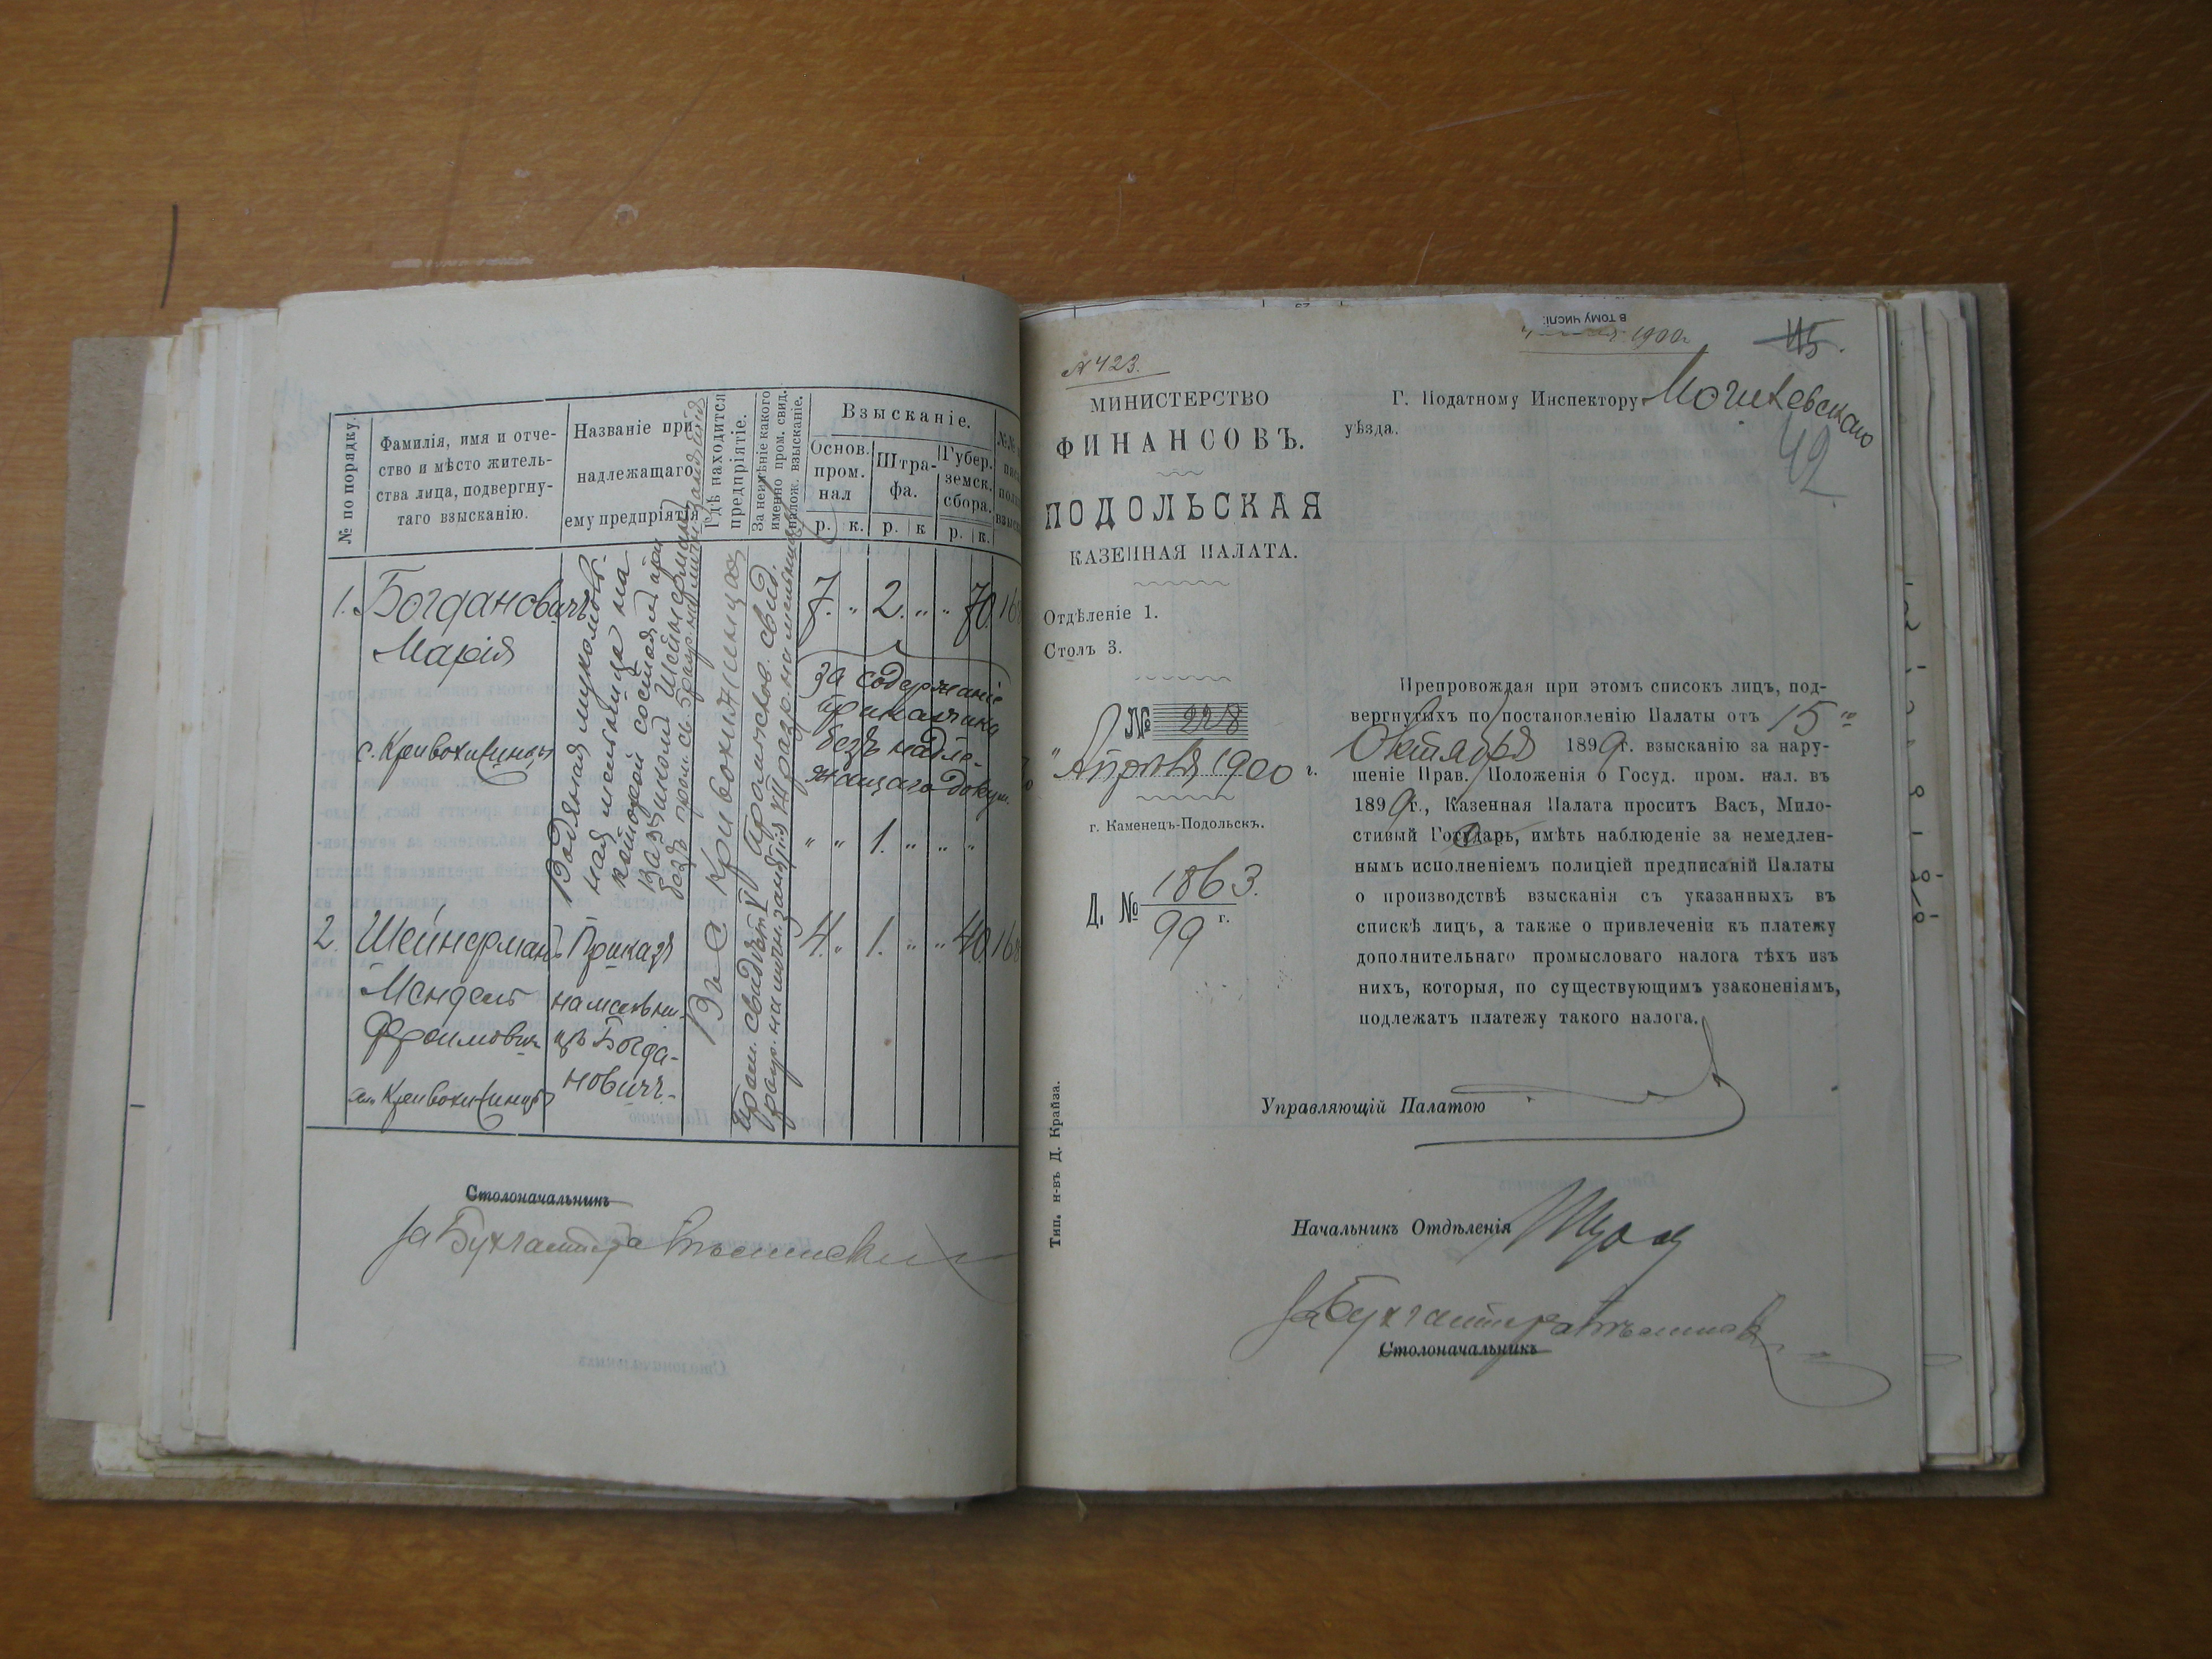 № по порядку.
Фамилія, имя и отче-
ство и мѣсто житель-
ства лица, подвергну-
таго взысканію.
Названіе при-
надлежащаго
ему предпріятія
Гдѣ находится
предпріятіе.
За неимѣніе какого
именно пром. свид.
налож. взысканіе.
Взысканіе.
Основ.
пром.
нал
Штра-
фа.
Губер.
земск.
сбора.
р. к. р. к р. к.
1. Богдановичъ
Марія
с. Кривохижинцы
Водяная мукомоль-
ная мельница на
которой состоялъ при-
кащикомъ Шейнерманъ
безъ пром. св.
Въ с. Кривохижинцахъ
7. „ 2. „ „ 70.
за содержаніе
прикащика
безъ надле-
жащаго докум.
„ „ 1. „ „ „
2. Шейнерманъ
Мендель
Фроимовъ
Кривохижинцы
Приказч
на мельни-
цѣ Богда-
новичъ
4. „ 1. „ „ 40.
Столоначальникъ
за Бухгалтера
№ 423.
1900 г.
115.
в тому числі:
МИНИСТЕРСТВО
ФИНАНСОВЪ.
ПОДОЛЬСКАЯ
КАЗЕННАЯ ПАЛАТА.
Отдѣленіе 1.
Столъ 3.
№ 228
„ Апрѣля 1900 г.
г. Каменецъ-Подольскъ.
Д. № 1863.
99 г.
Г. Податному Инспектору Могилевскаго
уѣзда.
42
Препровождая при этомъ списокъ лицъ, под-
вергнутыхъ по постановленію Палаты отъ 15 го
Октября 1899 г. взысканію за нару-
шеніе Прав. Положенія о Госуд. пром. нал. въ
1899 г., Казенная Палата проситъ Васъ, Мило-
стивый Государь, имѣть наблюденіе за немедлен-
нымъ исполненіемъ полиціей предписаній Палаты
о производствѣ взысканія съ указанныхъ въ
спискѣ лицъ, а также о привлеченіи къ платежу
дополнительнаго промысловаго налога тѣхъ изъ
нихъ, которыя, по существующимъ узаконеніямъ,
подлежатъ платежу такого налога.
Управляющій Палатою
Начальникъ Отдѣленія
за Бухгалтера
Столоначальникъ
Тип. н-въ Д. Крайза.